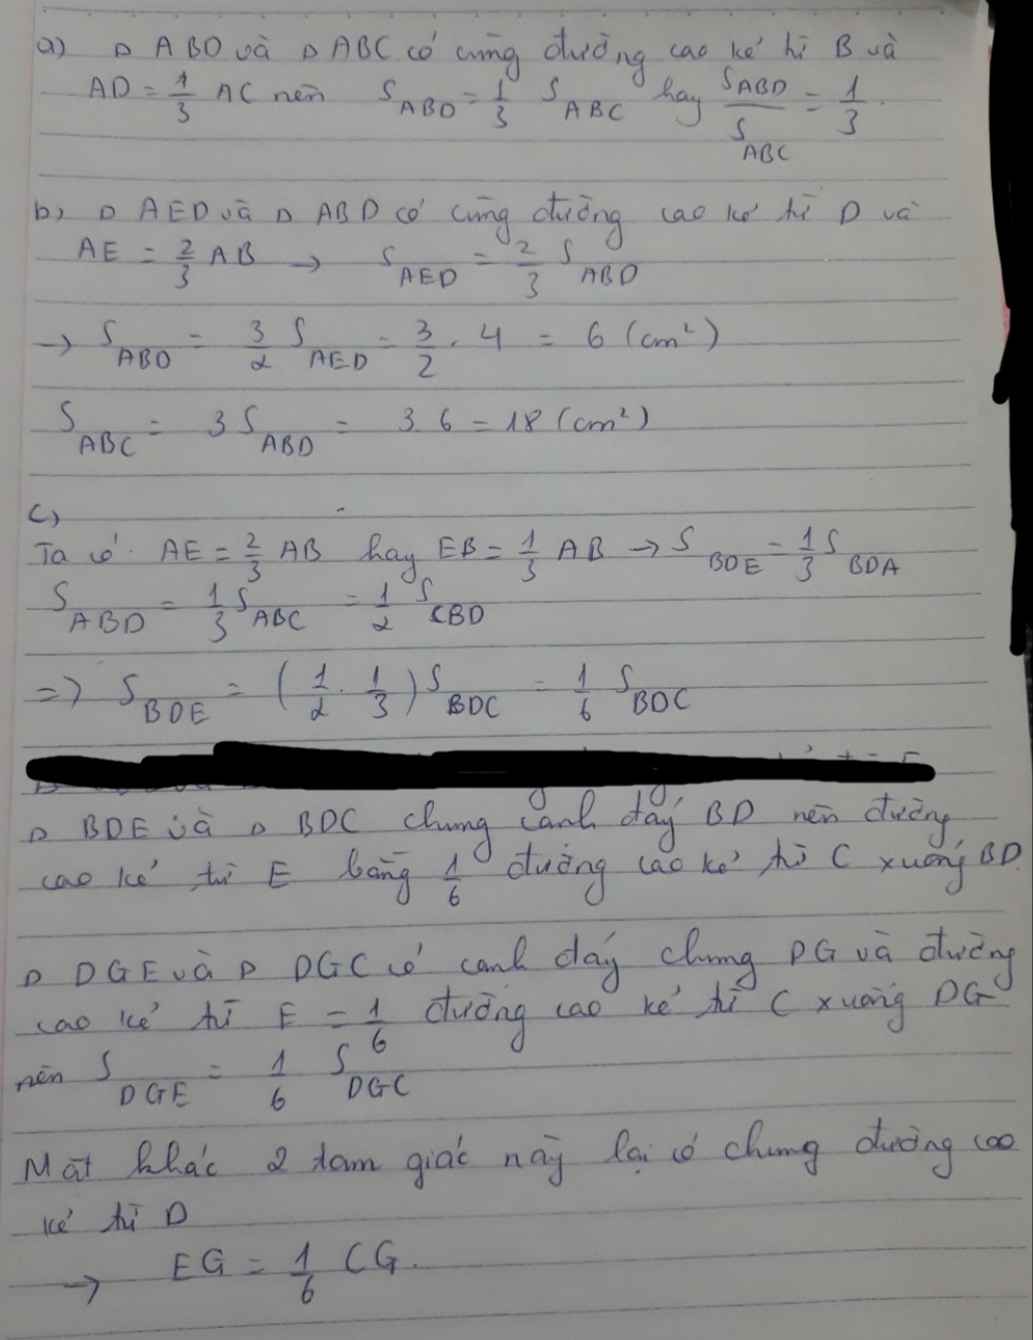 a) Δ ABD và Δ ABC có cùng đường cao kẻ từ B và
AD = 1/3 AC nên S_ABD = 1/3 S_ABC hay S_ABD/S_ABC = 1/3.
b) Δ AED và Δ ABD có cùng đường cao kẻ từ D và
AE = 2/3 AB → S_AED = 2/3 S_ABD
→ S_ABD = 3/2 S_AED = 3/2 . 4 = 6 (cm²)
S_ABC = 3 S_ABD = 3.6 = 18 (cm²)
c)
Ta có. AE = 2/3 AB hay EB = 1/3 AB → S_BDE = 1/3 S_BDA
S_ABD = 1/3 S_ABC = 1/2 S_CBD
=> S_BDE = (1/2 . 1/3) S_BDC = 1/6 S_BDC
Δ BDE và Δ BDC chung cạnh đáy BD nên đường
cao kẻ từ E bằng 1/6 đường cao kẻ từ C xuống BD.
Δ DGE và Δ DGC có cạnh đáy chung DG và đường
cao kẻ từ E = 1/6 đường cao kẻ từ C xuống DG
nên S_DGE = 1/6 S_DGC
Mặt khác 2 tam giác này lại có chung đường cao
kẻ từ D
→ EG = 1/6 CG.